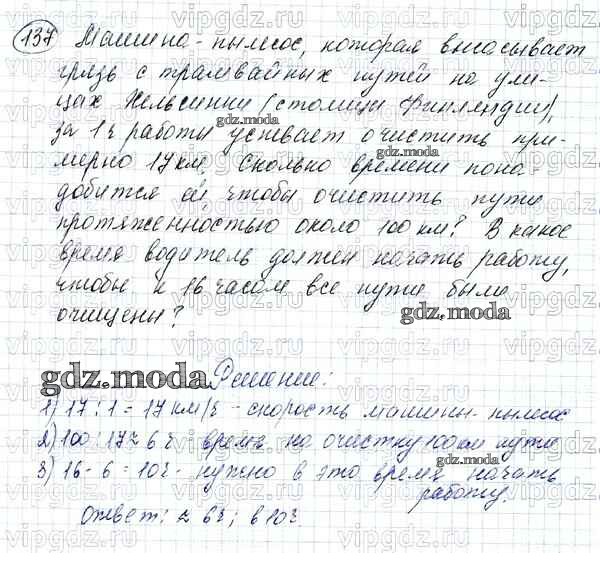 137 Машина-пылесос, которая высасывает
грязь с трамвайных путей на ули-
цах Хельсинки (столицы Финляндии),
за 1ч работы успевает очистить при-
мерно 17 км. Сколько времени пона-
добится ей, чтобы очистить пути
протяженностью около 100 км? В какое
время водитель должен начать работу,
чтобы к 16 часам все пути были
очищены?
Решение:
1) 17 : 1 = 17 км/ч - скорость машины-пылесос
2) 100 : 17 ≈ 6 ч - время на очистку 100 км пути
3) 16 - 6 = 10ч - нужно в это время начать
работу.
Ответ: ≈ 6ч; в 10ч.
gdz.moda
gdz.moda
gdz.moda
gdz.moda
gdz.moda
vipgdz.ru